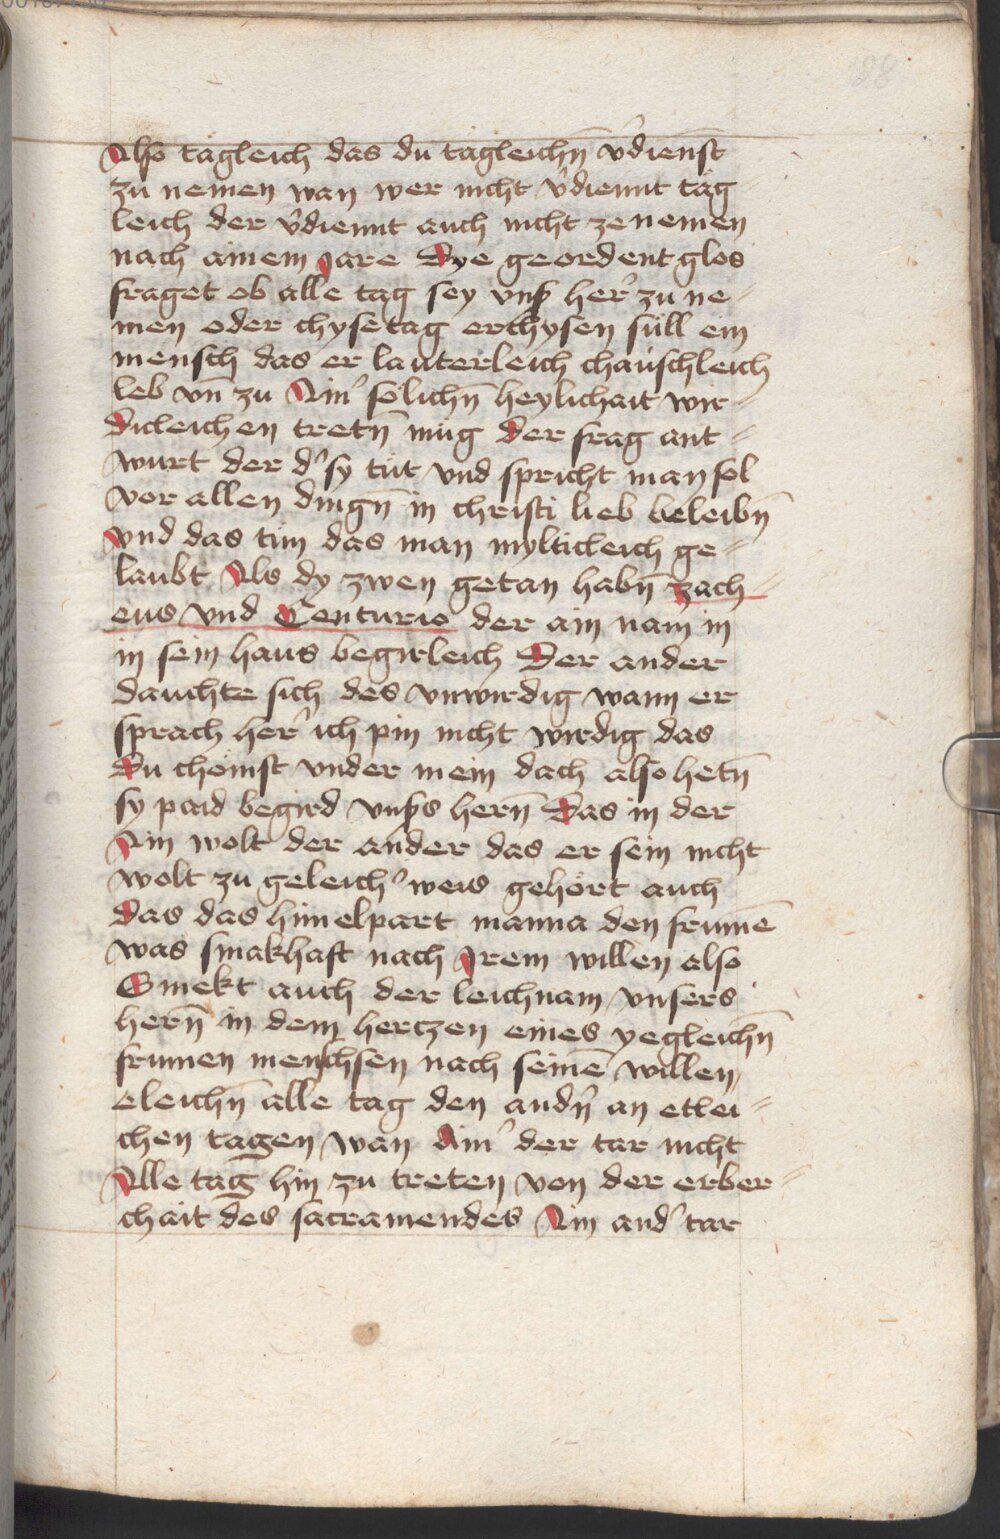 Also tagleich das du tagleichn̄ v̓dienst
zu nemen wan wer nicht v̓diennt tag
leich der v̓diennt auch nicht ze nemen
nach ainem Jare Dye geordent glos
fraget ob alle tag sey vnß her̓ zu ne-
men oder chyse tag erchysen süll ein
mensch das er lauterleich chäuschleich
leb vn̄ zu Ain̓ sölichn̄ heylichait wir-
dicleichen tretn̄ müg Der frag ant=
wurt der d̓ sy tüt vnd spricht man sol
vor allen dingn̄ in christi lieb beleibn̄
vnd das tun das man mylticleich ge=
laubt Als dy zwen getan habn̄ zach=
eus vnd Centurio der ain nam in
in sein haus begirleich Der ander
dauchte sich des vnwirdig wann er
sprach her̓ ich pin nicht wirdig das
Du chömst vnder mein dach also hetn̄
sy paid begird vnßs hern̄ Das in der
Ain wolt der ander das er sein nicht
wolt zu geleich̓ weis gehört auch
das das himelpart manna den frumē
was smakhaft nach Irem willen also
Smekt auch der leichnam vnsers
hern̄ in dem hertzen eines yegleichn̄
frumen menschen nach seinē willen
eleichn̄ alle tag den andn̓ an etlei=
chen tagen wan Ain̓ der tar nicht
Alle tag hin zu treten von der erber=
chait des sacramendes Ain and̓ tar